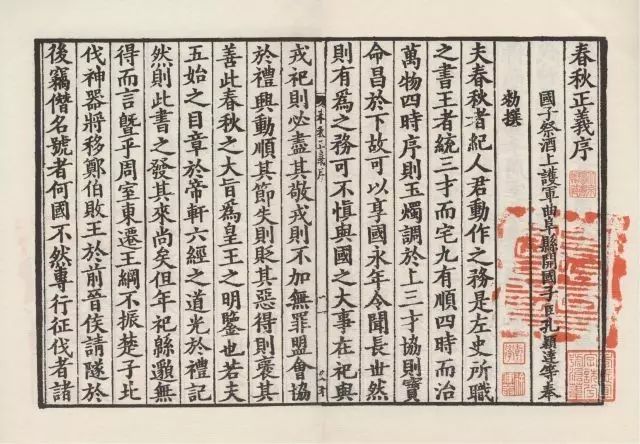 春秋正義序
國子祭酒上護軍曲阜縣開國子臣孔穎達等奉
勑撰
夫春秋者紀人君動作之務是左史所職
之書王者統三才而宅九有順四時而治
萬物四時序則玉燭調於上三才協則寶
命昌於下故可以享國永年令聞長世然
則有爲之務可不愼與國之大事在祀與
戎祀則必盡其敬戎則不加無罪盟會協
於禮興動順其節失則貶其惡得則褒其
善此春秋之大旨爲皇王之明鑒也若夫
五始之目章於帝軒六經之道光於禮記
然則此書之發其來尚矣但年祀緜邈無
得而言曁乎周室東遷王綱不振楚子北
伐神器將移鄭伯敗王於前晉侯請隧於
後竊僭名號者何國不然專行征伐者諸